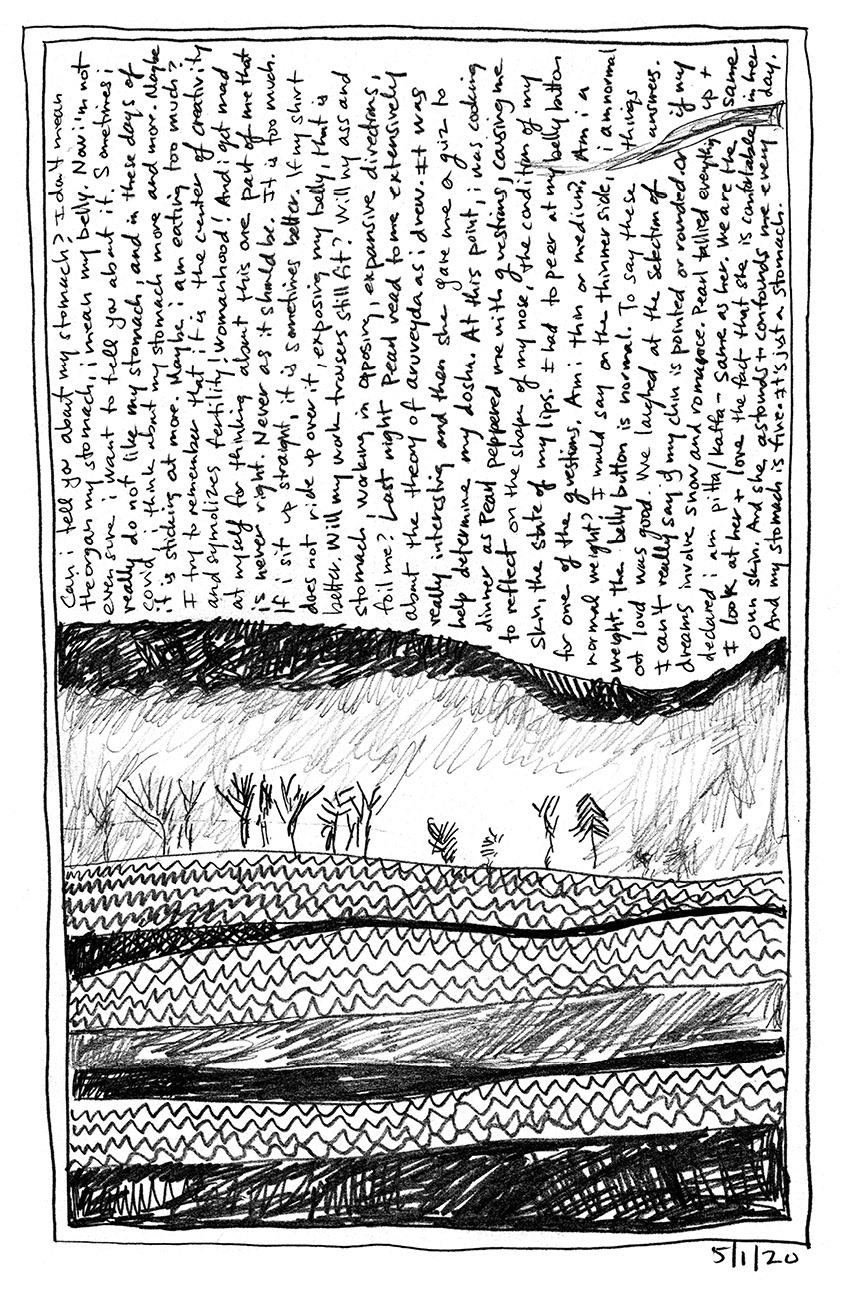 Can i tell you about my stomach? I don't mean
the organ my stomach, i mean my belly. Nav i'm not
even sure i want to tell you about it. Sometimes i
really do not like my stomach, and in these days of
covid, i think about my stomach more and more. Maybe
it is sticking out more. Maybe i am eating too much?
I try to remember that it is the center of creativity
and symolizes fertility, womanhood! And i get mad
at myself for thinking about this one part of me that
is never right. Never as it should be. It is too much.
If i sit up straight, it is sometimes better. If my shirt
does not ride up over it, exposing my belly, that is
better. Will my work trousers still fit? Will my ass and
stomach working in opposing, expansive directions,
foil me? Last night Pearl read to me extensively
about the theory of aruveyda as i drew. It was
really interesting and then she gave me a quiz to
help determine my dosha. At this point, i was cooking
dinner as Pearl peppered me with questions, causing me
to reflect on the shape of my nose, the condition of my
skin, the state of my lips. I had to peer at my belly button
for one of the questions. Am i thin or medium? Am i a
normal weight? I would say on the thinner side, i am normal
weight. The belly button is normal. To say these things
out loud was good. We laughed at the selection of answers.
I can't really say if my chin is pointed or rounded. Or if my
dreams involve snow and romance. Pearl tallied everything up +
declared i am pitta/kaffa - Same as her. We are the same
I look at her + love the fact that she is comfortable in her
own skin. And she astounds + confounds me every day.
And my stomach is fine. It's just a stomach.
5/1/20